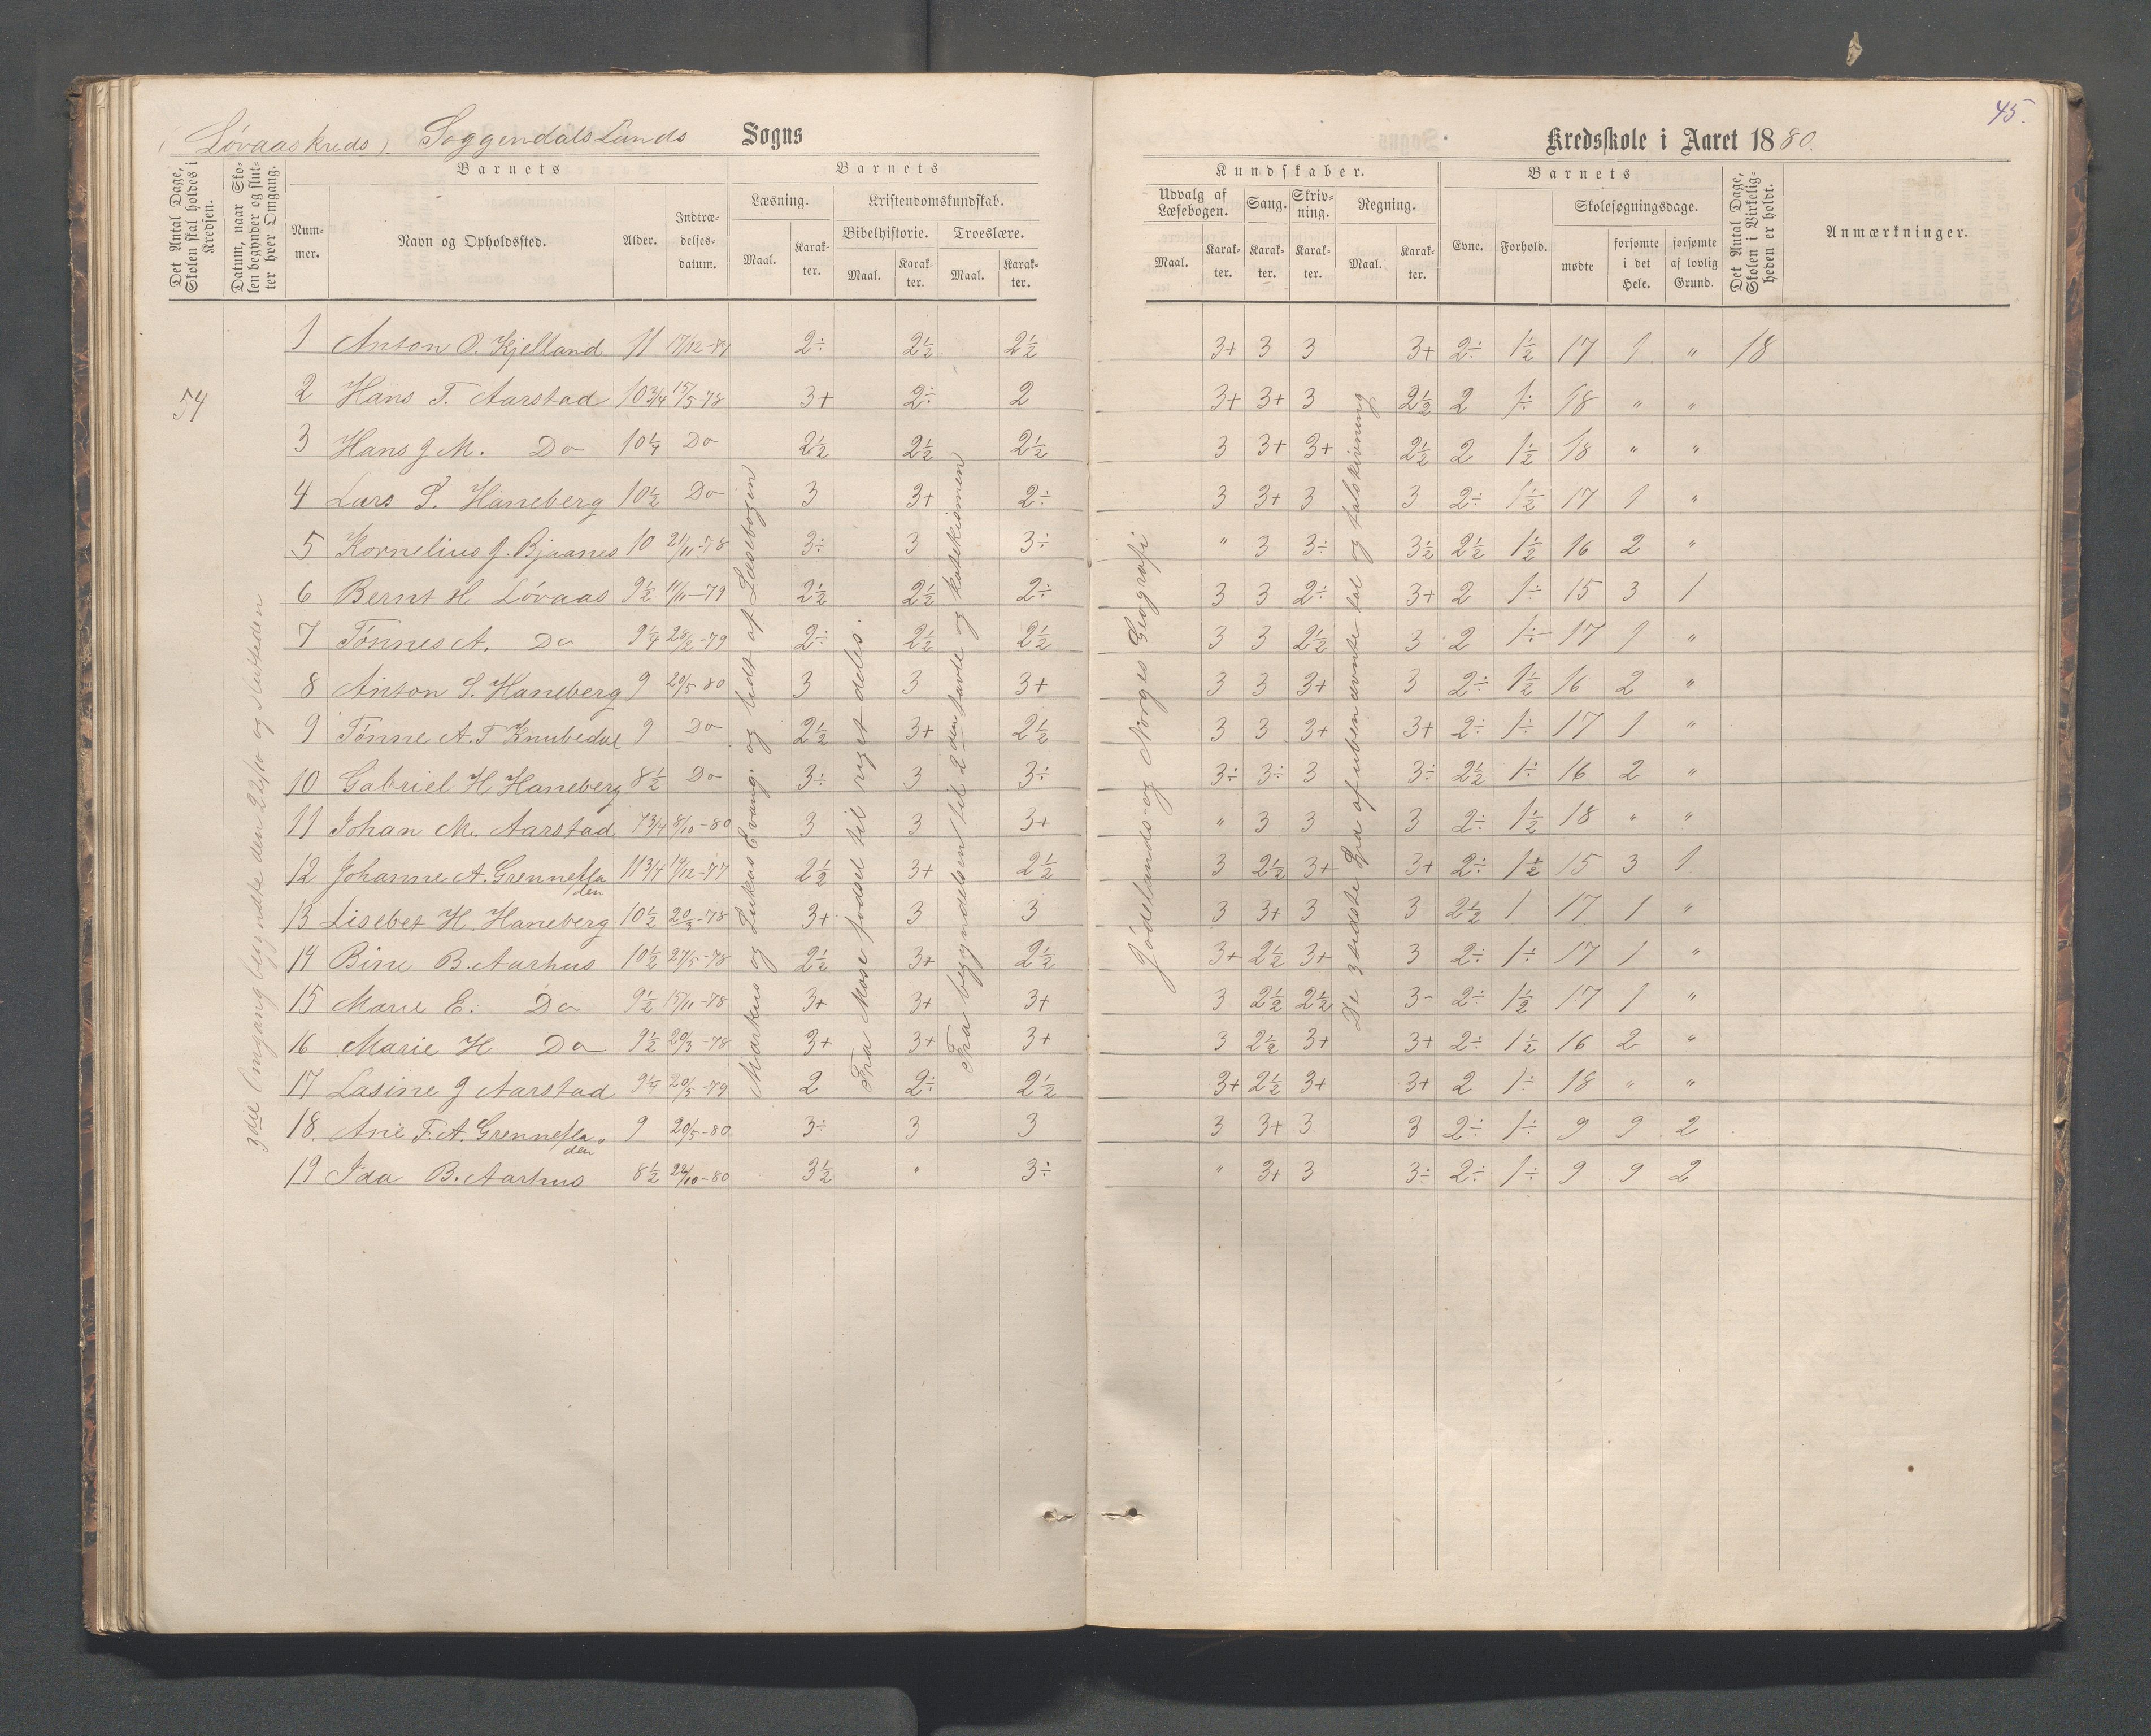 45.
(Løvaaskreds). Soggendals Lands Sogns Kredsskole i Aaret 1880.
Det Antal Dage, Skolen skal holdes i Kredsen.
Datum, naar Skolen begynder og slutter hver Omgang.
Barnets
Nummer.
Navn og Opholdssted.
Alder.
Indtrædelsesdatum.
Barnets
Læsning.
Kristendomskundskab.
Maal.
Karakter.
Bibelhistorie.
Troeslære.
Maal.
Karakter.
Maal.
Karakter.
Kundskaber.
Udvalg af Læsebogen.
Sang.
Skrivning.
Regning.
Maal.
Karakter.
Karakter.
Karakter.
Maal.
Karakter.
Barnets
Evne.
Forhold.
Skolesøgningsdage.
mødte
forsømte i det Hele.
forsømte af lovlig Grund.
Det Antal Dage, Skolen i Virkeligheden er holdt.
Anmærkninger.
54
3die Omgang begyndte den 22/10 og sluttede den
Markus og Lukas Evang. og lidt af Læsebogen
Fra Mose fødsel til riget deles.
Fra begyndelsen til 2den tavle og katekismen
Jødelands- og Norges Geografi
De 4 sidste Spa af ubenævnte tal og talskrivning
1 Anton O. Kjelland 11 17/12-87 2÷ 2½ 2½ 3+ 3 3 3+ 2÷ 1½ 17 1 " 18
2 Hans T. Aarstad 10 3/4 15/5-78 3+ 2÷ 2 3+ 3+ 3 2½ 2 1÷ 18 " "
3 Hans J M. Do 10¼ Do 2½ 2½ 2½ 3 3+ 3+ 2½ 2 1½ 18 " "
4 Lars S. Haneberg 10½ Do 3 3+ 2÷ 3 3+ 3 3 2÷ 1½ 17 1 "
5 Kornelius J. Bjaanes 10 21/11-78 3÷ 3 3÷ " 3 3÷ 3½ 2½ 1½ 16 2 "
6 Bernt H Løvaas 9½ 11/11-79 2½ 2½ 2÷ 3 3 2÷ 3+ 2 1÷ 15 3 1
7 Tønnes A. Do 9¼ 28/2-79 2÷ 2½ 2½ 3 3 2½ 3 2 1÷ 17 1 "
8 Anton S. Haneberg 9 20/5 80 3 3 3+ 3 3 3+ 3 2÷ 1½ 16 2 "
9 Tønne A. T Knubedal 9 Do 2½ 3+ 2½ 3 3 3+ 3+ 2÷ 1÷ 17 1 "
10 Gabriel H Haneberg 8½ Do 3÷ 3 3÷ 3÷ 3÷ 3 3÷ 2½ 1÷ 16 2 "
11 Johan M. Aarstad 7 3/4 8/10-80 3 3 3+ " 3 3 3 2÷ 1½ 18 " "
12 Johanne A. Grennesladen 11 3/4 14/12-77 2½ 3+ 2½ 3 2½ 3+ 3+ 2÷ 1½ 15 3 1
13 Lisebet H. Haneberg 10½ 20/3-78 3+ 3 3 3 3+ 3 3 2½ 1 17 1 "
14 Bine B. Aarhus 10½ 27/5-78 2½ 3+ 2½ 3+ 2½ 3+ 3 2÷ 1÷ 17 1 "
15 Marie E. Do 9½ 15/11-78 3+ 3+ 3+ 3 2½ 2½ 3- 2÷ 1½ 17 1 "
16 Marie H Do 9½ 20/3-78 3+ 3+ 3+ 3 2½ 3+ 3+ 2÷ 1½ 16 2 "
17 Lasine J Aarstad 9¼ 20/5-79 2 2÷ 2½ 3+ 2½ 3+ 3+ 2 1÷ 18 " "
18. Ane F. A. Grennesladen 9 20/5-80 3÷ 3 3 3 3+ 3 3 2÷ 1÷ 9 9 2
19 Ida B. Aarhus 8½ 22/10-80 3½ " 3÷ " 3+ 3 3÷ 2÷ 1÷ 9 9 2